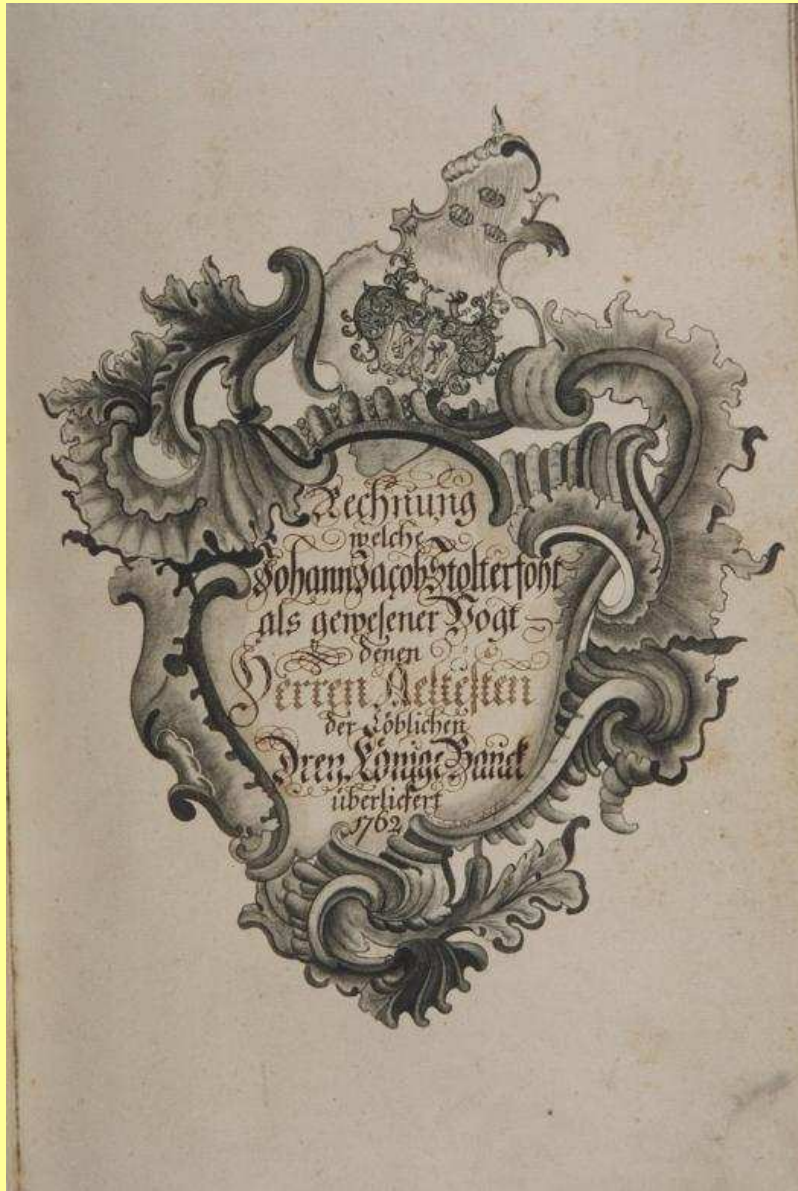 Rechnung
welche
Johann Jacob Stolterfoht
als gewesener Vogt
denen
Herren Aeltesten
der Löblichen
Drey Könige Banck
überliefert
1762